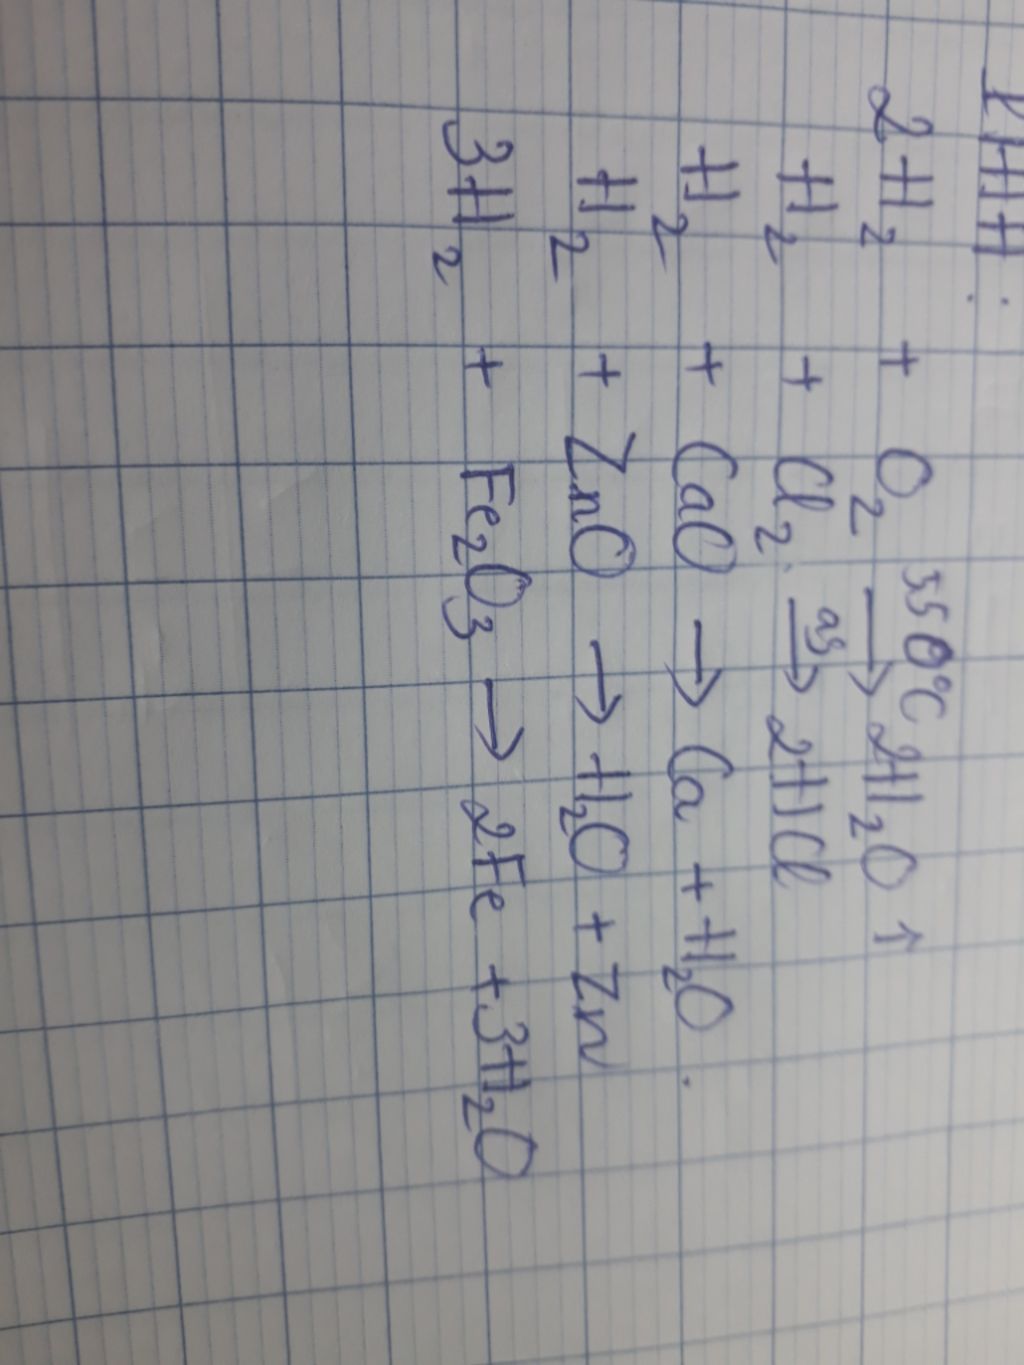 PTHH:
2H₂ + O₂ 550°C → 2H₂O ↑
H₂ + Cl₂ as → 2HCl
H₂ + CaO → Ca + H₂O.
H₂ + ZnO → H₂O + Zn
3H₂ + Fe₂O₃ → 2Fe + 3H₂O